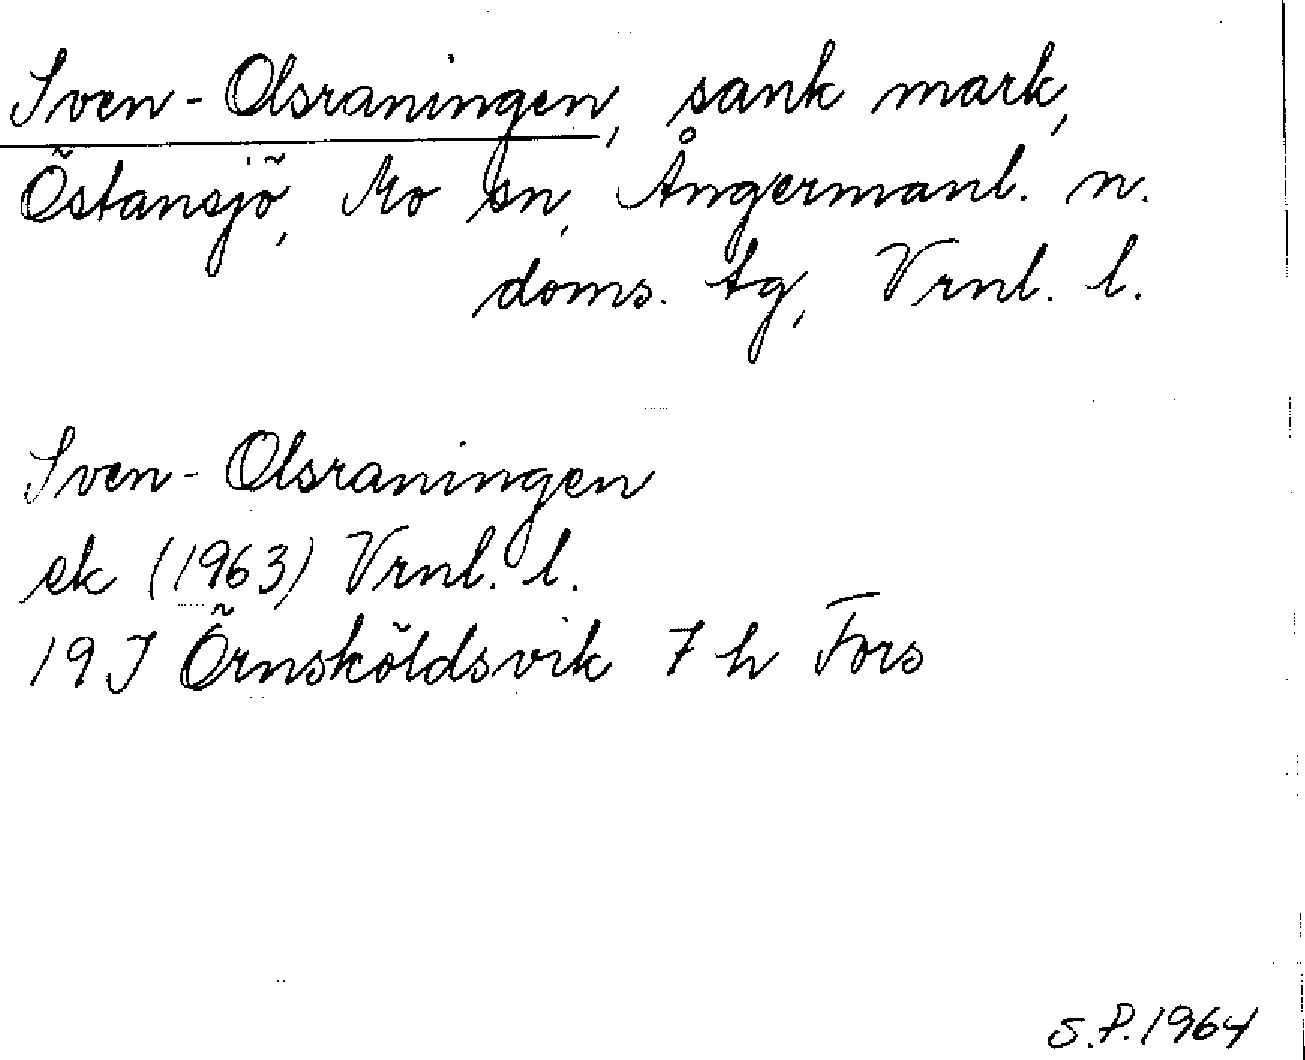 Sven-Olsraningen, sank mark,
Östansjö, Mo sn, Ångermanl. n.
doms. tg, Vrnl. l.
Sven-Olsraningen
ek (1963) Vrnl. l.
19 J Örnsköldsvik 7 h Fors
S.P. 1964